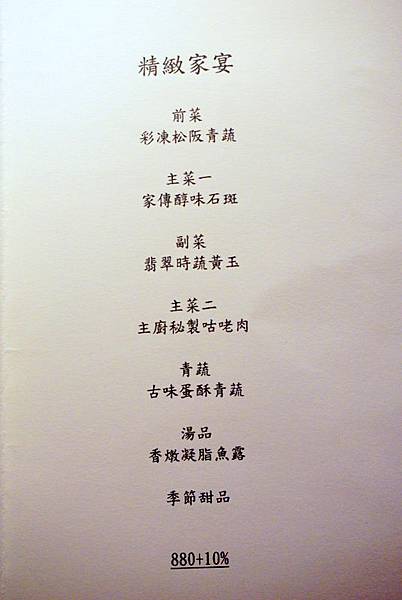 精緻家宴
前菜
彩凍松阪青蔬
主菜一
家傳醇味石斑
副菜
翡翠時蔬黃玉
主菜二
主廚秘製咕咾肉
青蔬
古味蛋酥青蔬
湯品
香燉凝脂魚露
季節甜品
880+10%